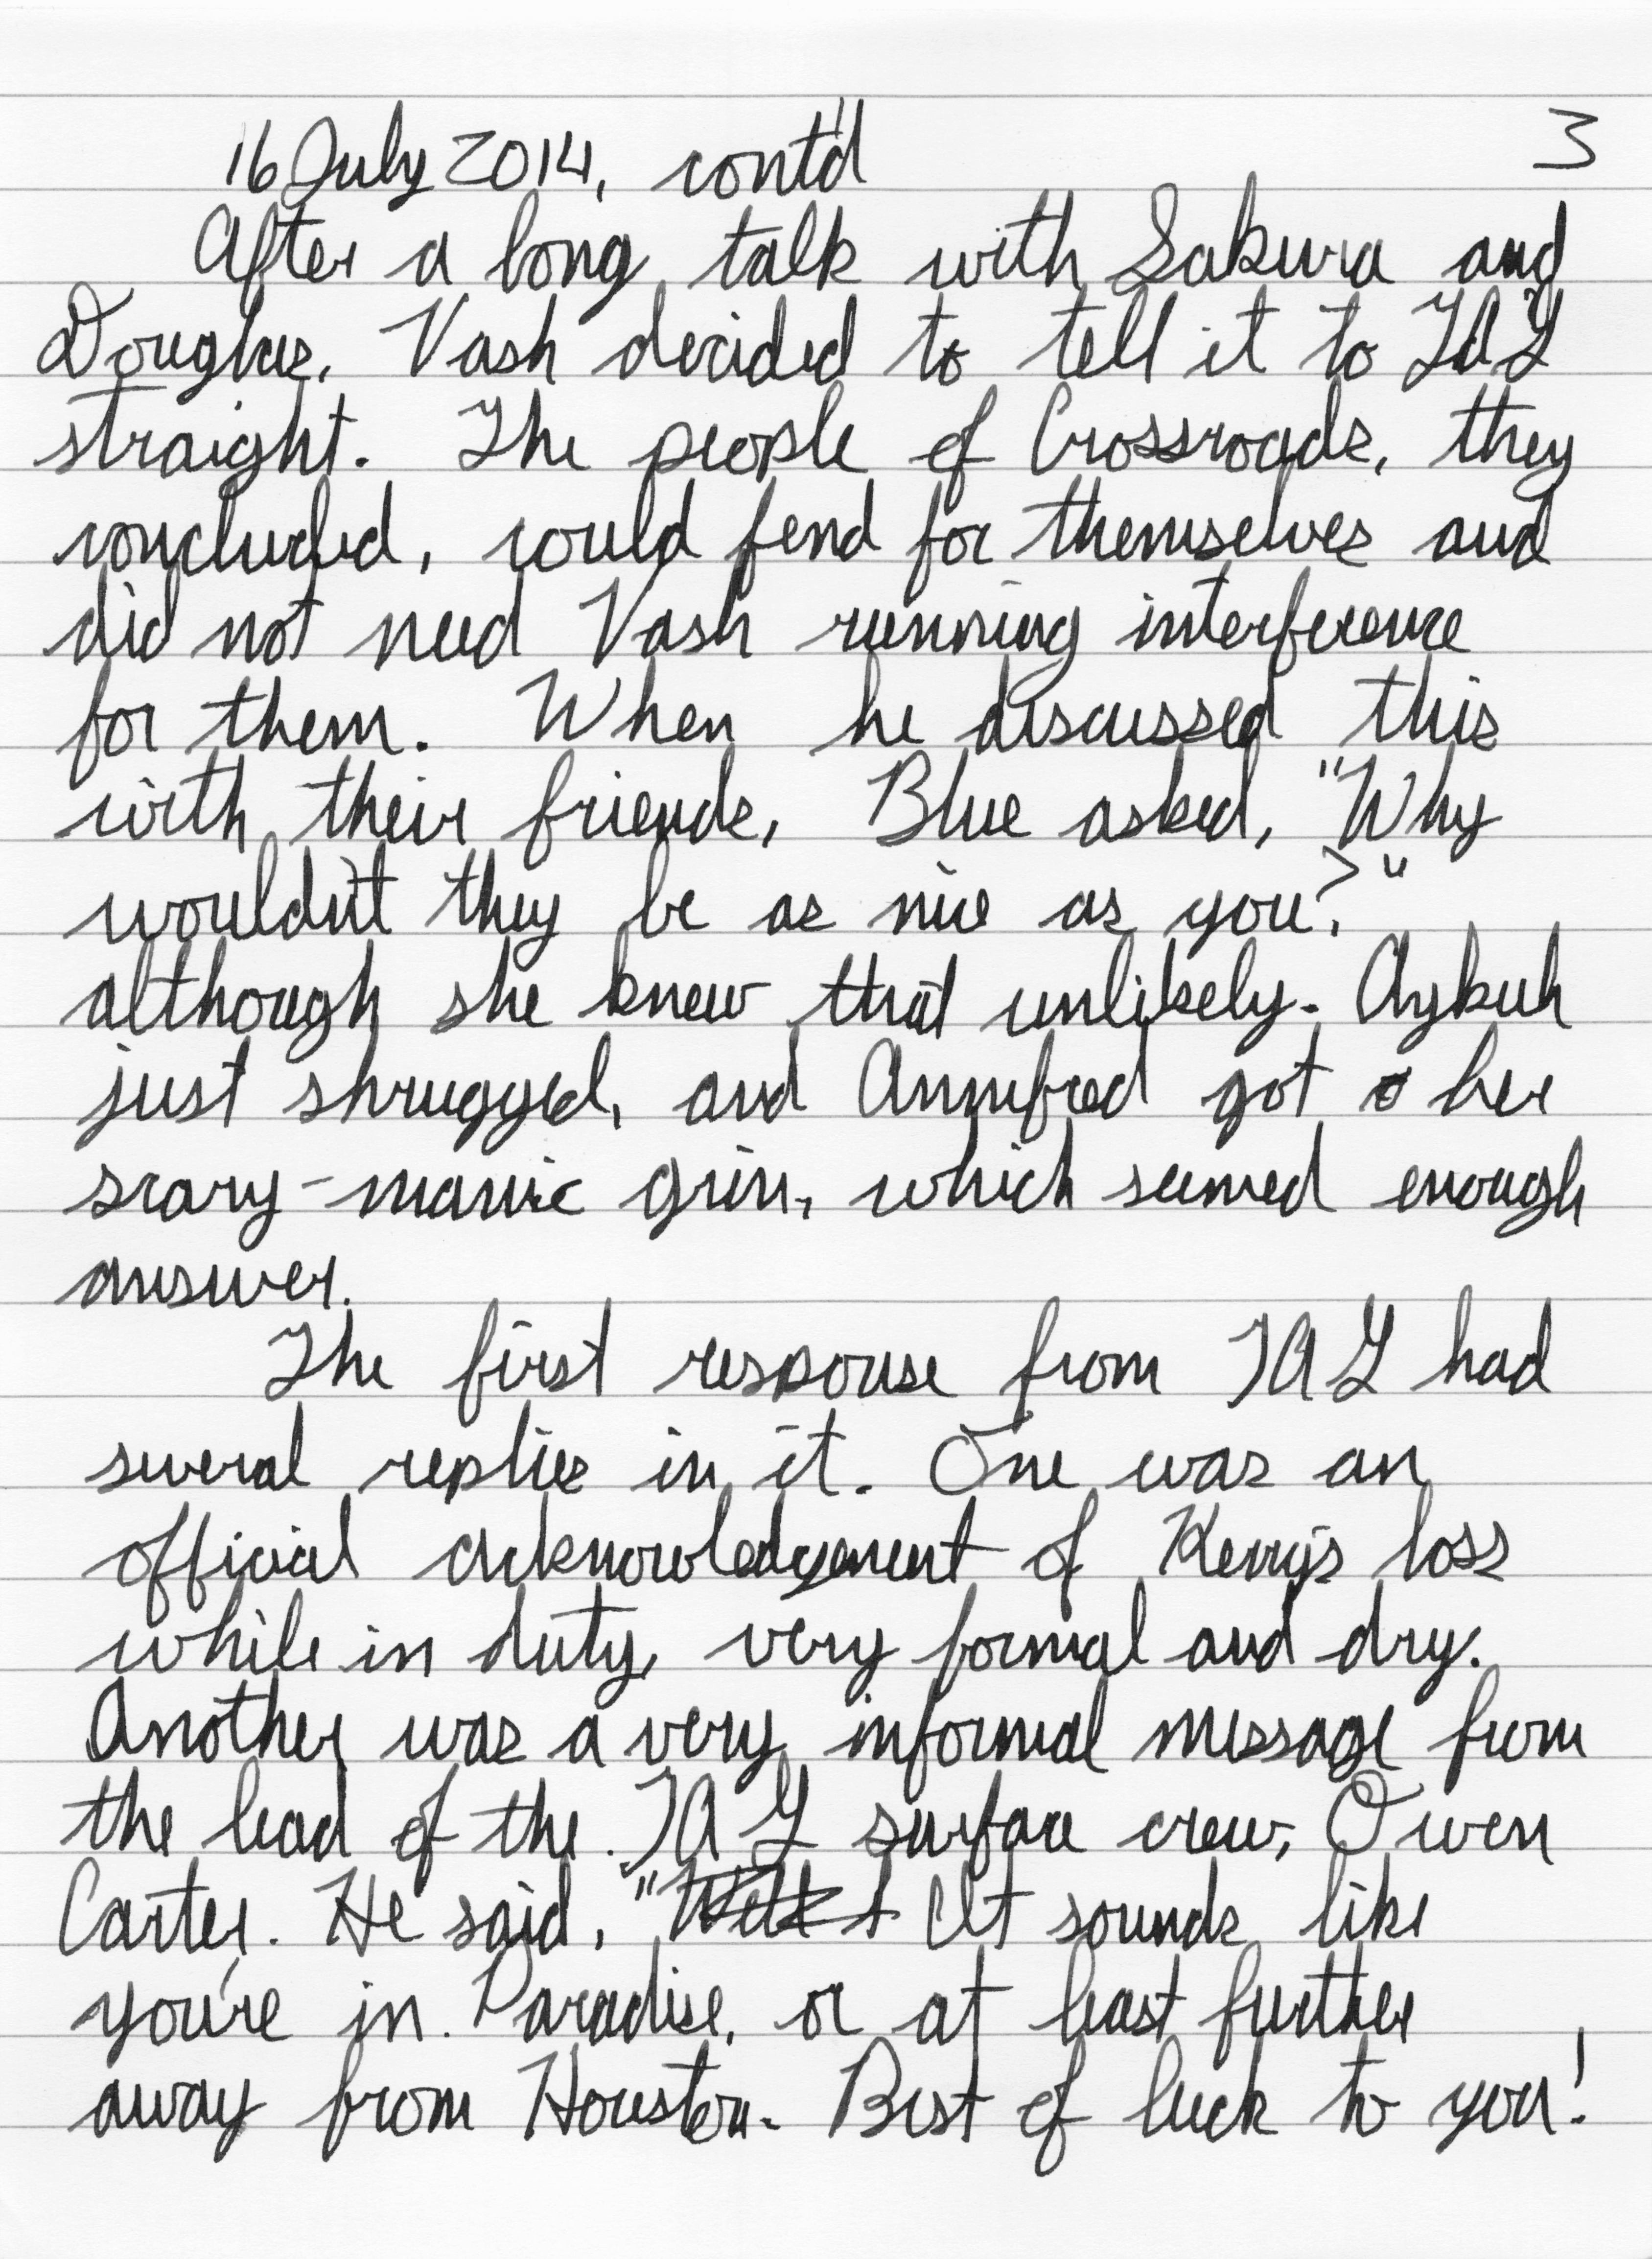 16 July 2014, cont'd 3
After a long talk with Sakura and
Douglas, Vash decided to tell it to TAY
straight. The people of Crossroads, they
concluded, could fend for themselves and
did not need Vash running interference
for them. When he discussed this
with their friends, Blue asked, "Why
wouldn't they be as nice as you?"
although she knew that unlikely. Aykuh
just shrugged, and Annifred got her
scary-manic grin, which seemed enough
answer.
The first response from TAY had
several replies in it. One was an
official acknowledgement of Kerry's loss
while in duty, very formal and dry.
Another was a very informal message from
the lead of the TAY surface crew, Owen
Carter. He said, "It sounds like
you're in Paradise, or at least further
away from Houston. Best of luck to you!